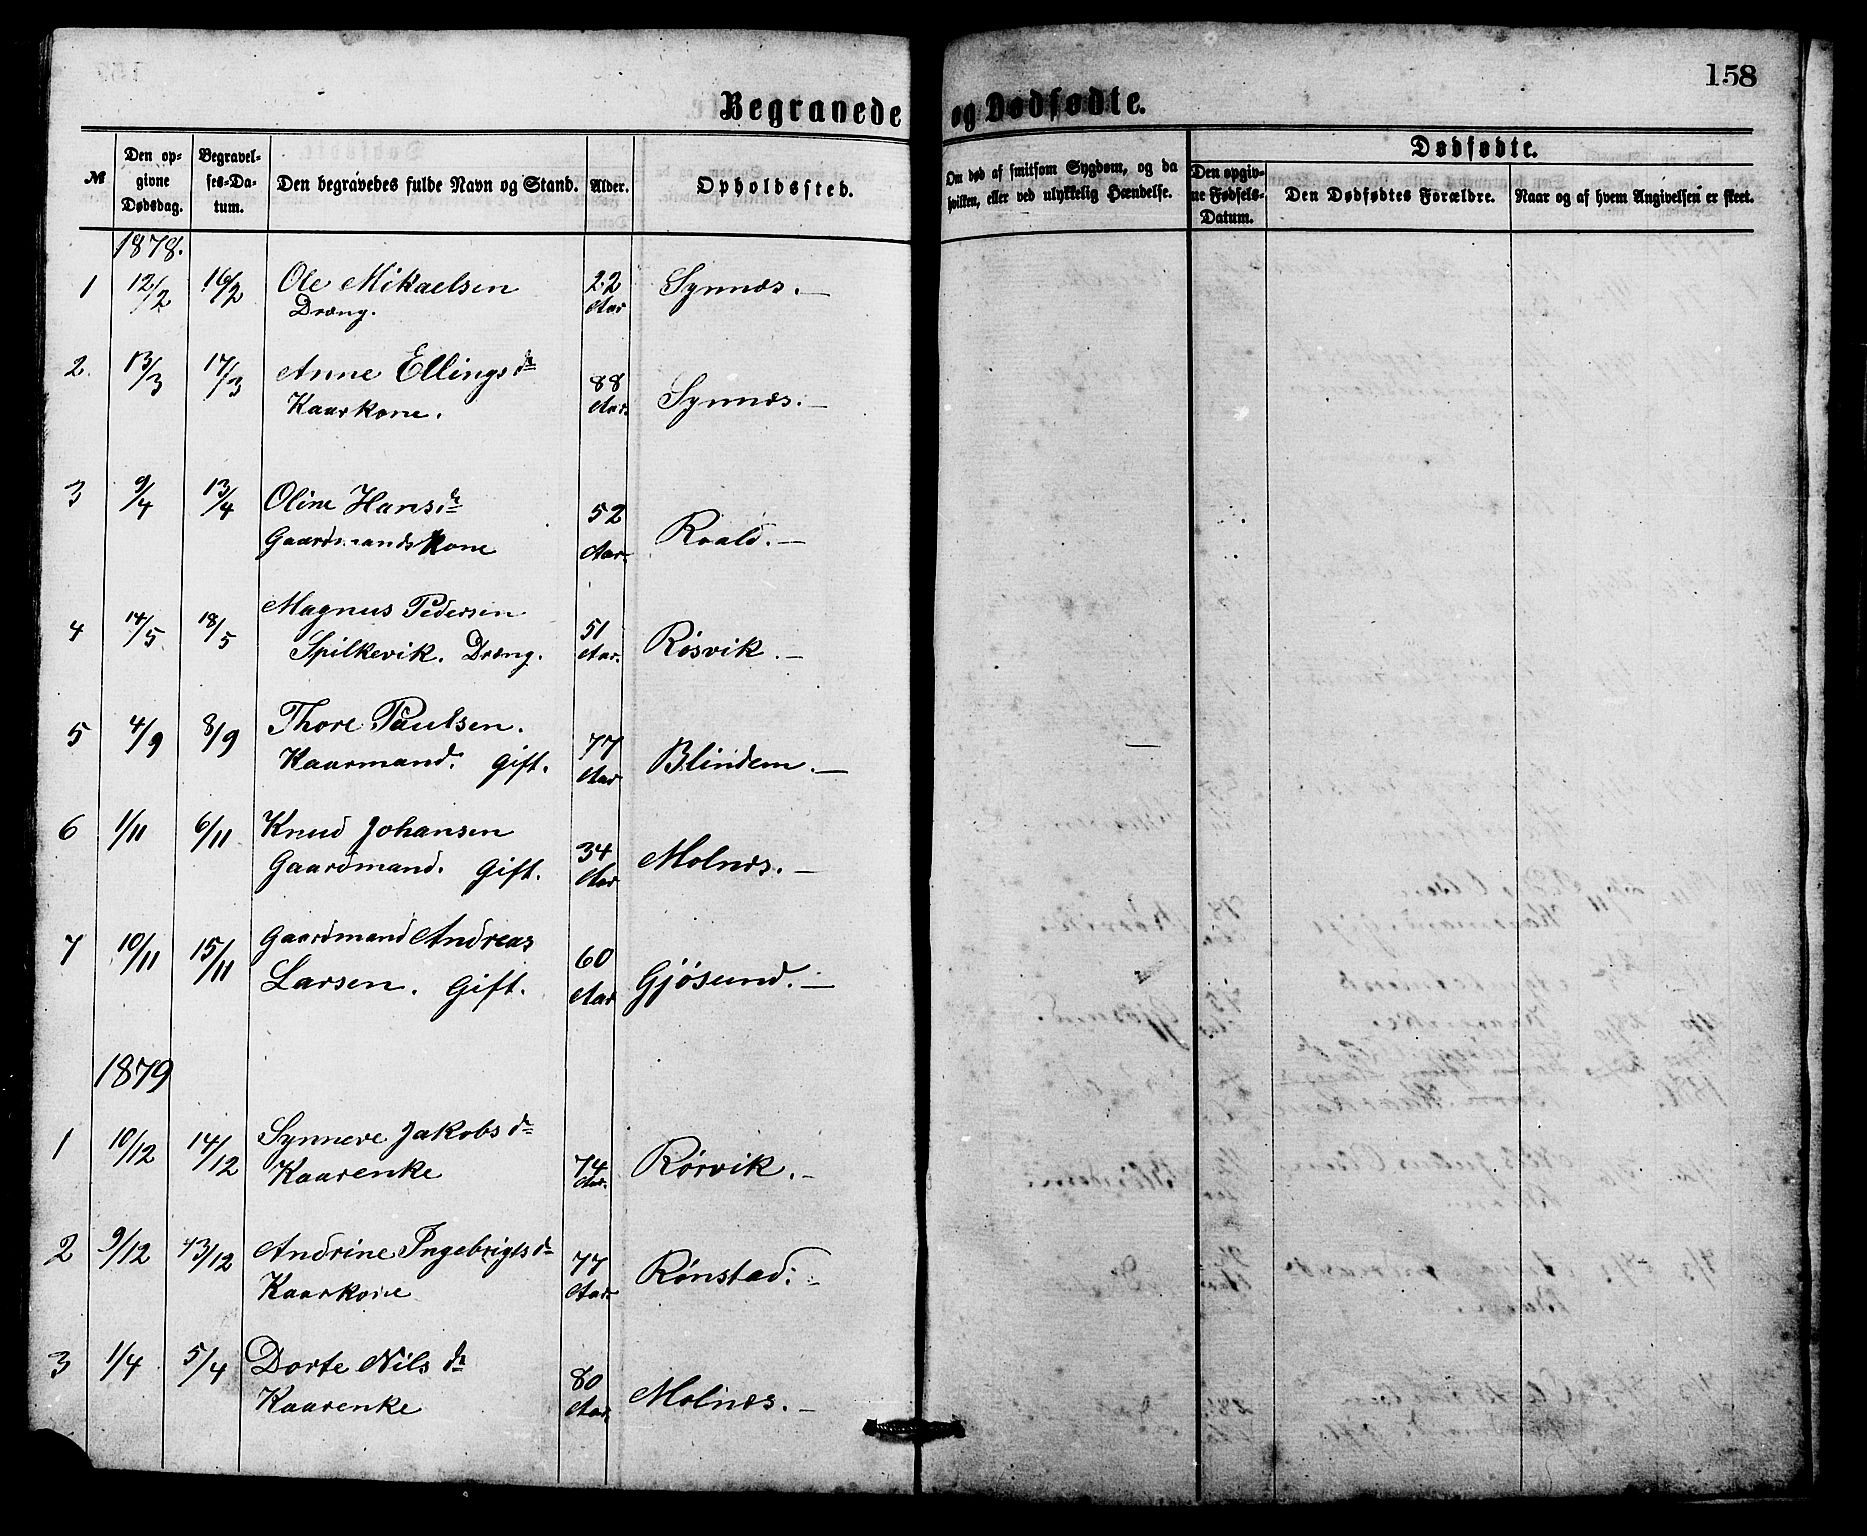 158
Begravede og Dødfødte.
№
Den op-
givne
Dødsdag.
Begravel-
ses-Da-
tum.
Den begravedes fulde Navn og Stand.
Alder.
Opholdssted.
Om død af smitsom Sygdom, og da
hvilken, eller ved ulykkelig Hændelse.
Dødfødte.
Den opgiv-
ne Fødsels-
Datum.
Den Dødfødtes Forældre.
Naar og af hvem Angivelsen er skeet.
1878.
1 12/2 16/2 Ole Mikaelsen 22 Synnæs. —
Dræng. Aar
2. 13/3 17/3 Anne Ellingsdr 88 Synnæs. —
Kaarkone. Aar.
3 9/4 13/4 Oline Hansdr 52 Roald. —
Gaardmands Kone Aar.
4 14/5 18/5 Magnus Pedersen 51 Røsvik. —
Spilkevik. Dræng. Aar.
5 4/9 8/9 Thore Paulsen. 77 Blindem. —
Kaarmand. Gift. Aar
6 1/11 6/11 Knud Johansen 34 Molnæs. —
Gaardmand. Gift. Aar
7 10/11 15/11 Gaardmand Andreas 60 Gjøsund. —
Larsen. Gift. Aar
1879
1 10/12 14/12 Synneve Jakobsdr 74 Rørvik. —
Kaarenke Aar.
2 9/12 13/12 Andrine Ingebrigtsdr 77 Rønstad. —
Kaarkone Aar.
3 1/4 5/4 Dorte Nilsdr 80 Molnæs. —
Kaarenke Aar.